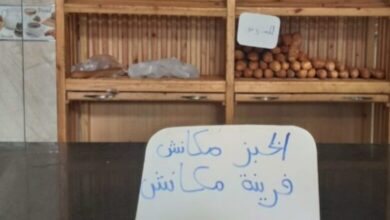 الخبز مكانش
فرينة مكانش